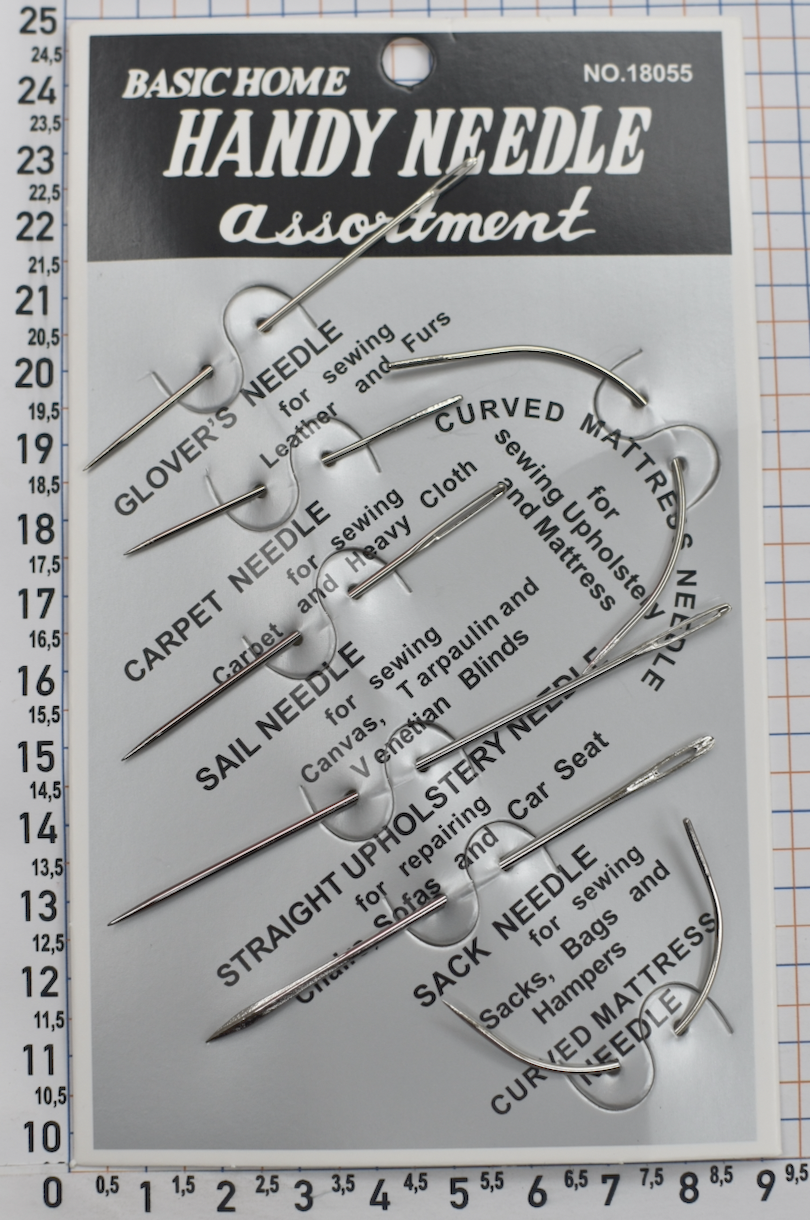 BASIC HOME
NO.18055
HANDY NEEDLE
assortment
GLOVER'S NEEDLE
for sewing
Leather and Furs
CURVED MATTRESS NEEDLE
for
sewing Upholstery
and Mattress
CARPET NEEDLE
for sewing
Carpet and Heavy Cloth
SAIL NEEDLE
for sewing
Canvas, Tarpaulin and
Venetian Blinds
STRAIGHT UPHOLSTERY NEEDLE
for repairing
Chairs, Sofas and Car Seat
SACK NEEDLE
for sewing
Sacks, Bags and
Hampers
CURVED MATTRESS
NEEDLE
25
24,5
24
23,5
23
22,5
22
21,5
21
20,5
20
19,5
19
18,5
18
17,5
17
16,5
16
15,5
15
14,5
14
13,5
13
12,5
12
11,5
11
10,5
10
0 0,5 1 1,5 2 2,5 3 3,5 4 4,5 5 5,5 6 6,5 7 7,5 8 8,5 9 9,5